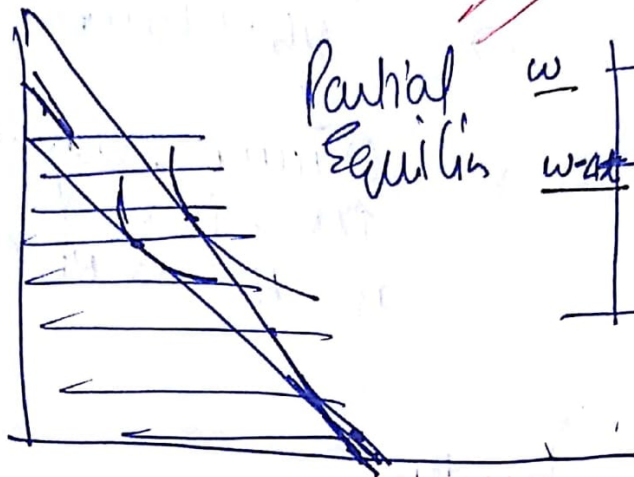 Partial
Equilib
w